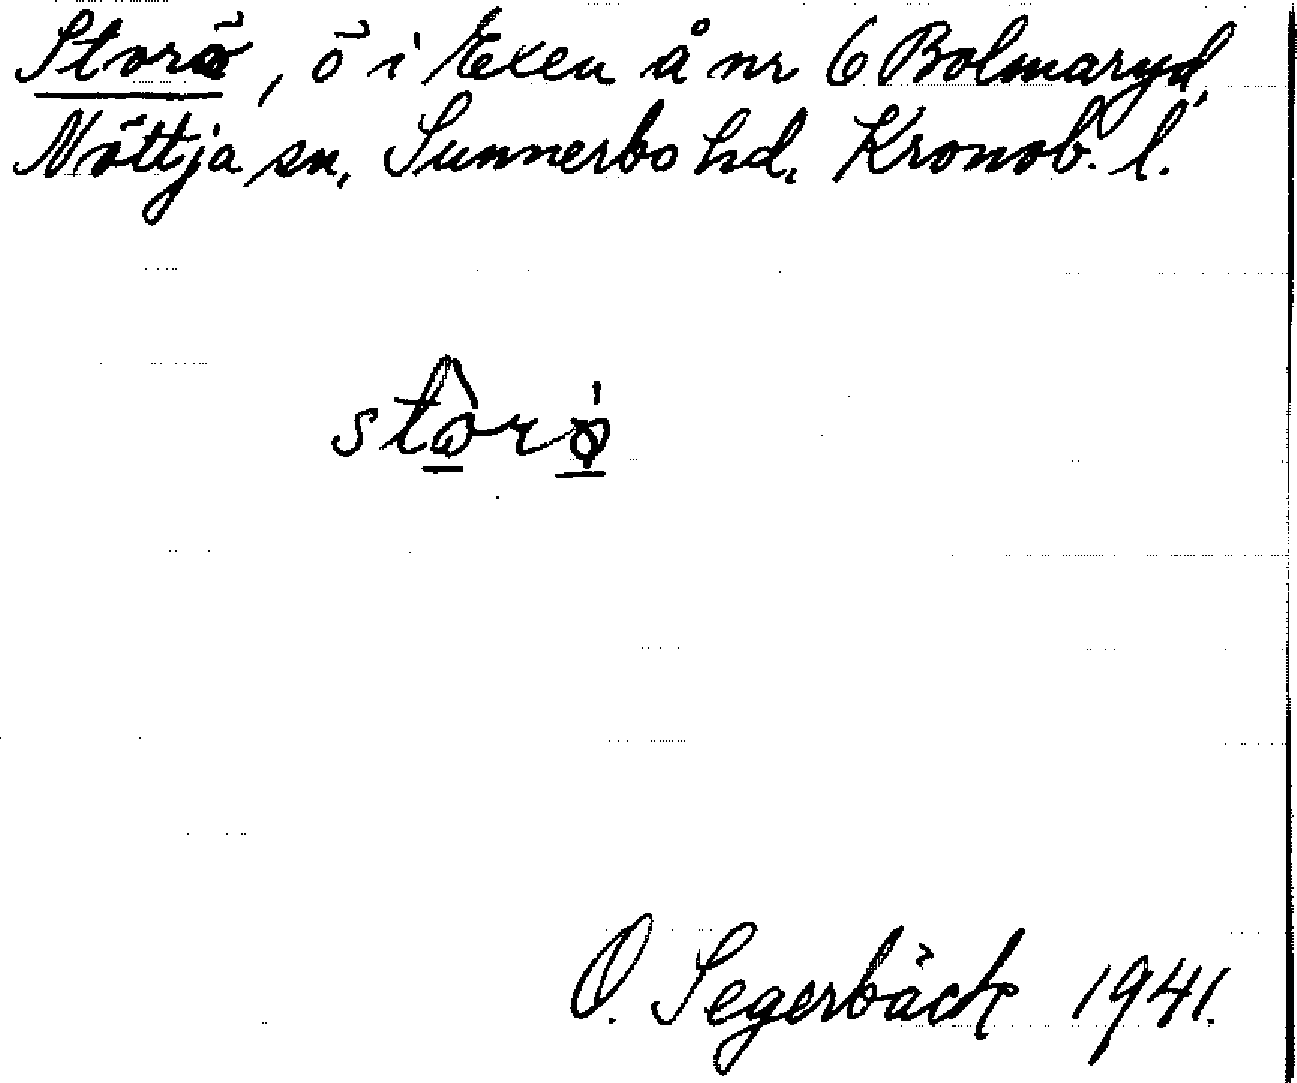 Storö, ö i Exen å nr 6 Bolmaryd,
Nöttja sn, Sunnerbo hd, Kronob. l.
O. Segerbäck 1941.